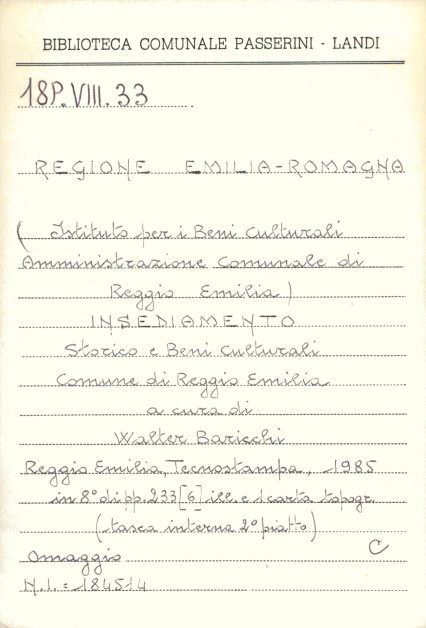 BIBLIOTECA COMUNALE PASSERINI - LANDI
18P.VIII.33
REGIONE EMILIA-ROMAGNA
(Istituto per i Beni Culturali
Amministrazione Comunale di
Reggio Emilia)
INSEDIAMENTO
Storico e Beni Culturali
Comune di Reggio Emilia
a cura di
Walter Baricchi
Reggio Emilia, Tecnostampa, 1985
in 8° di pp. 233 [6] ill. e 1 carta topogr.
(tasca interna 2° piatto)
Omaggio C
N.I. = 184514